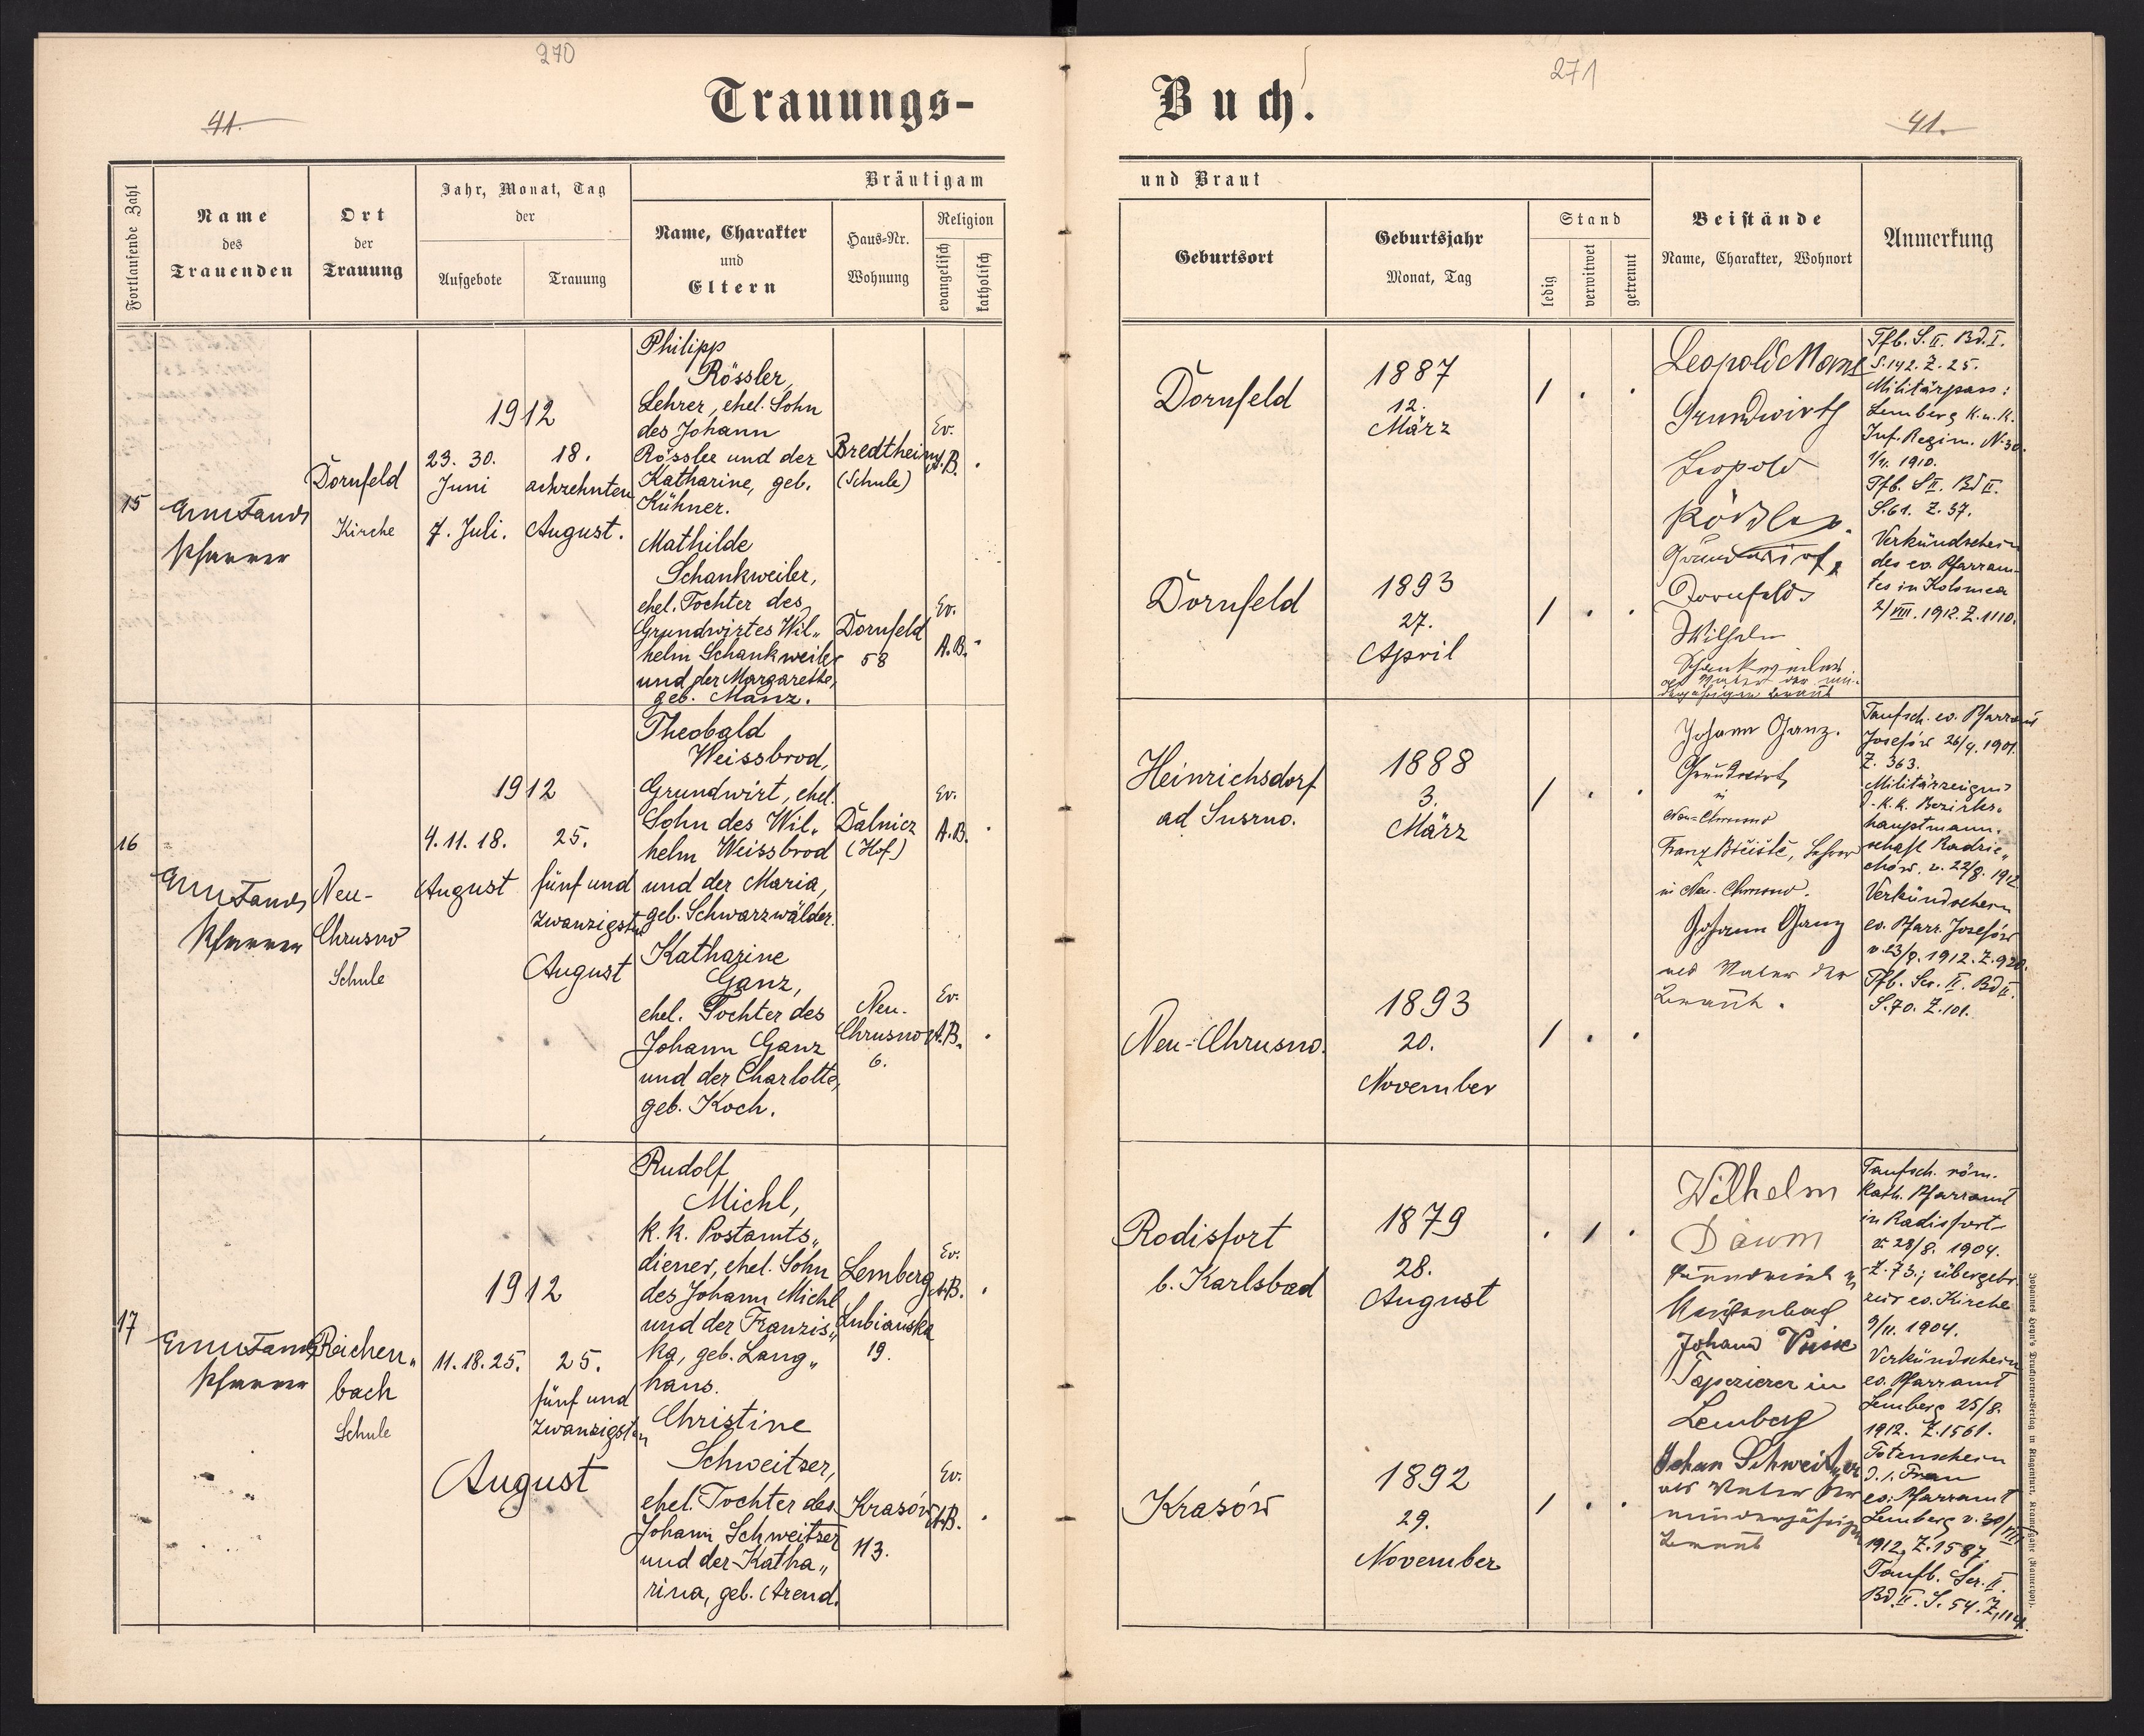 270
271
Trauungs-
Buch.
41.
41.
Fortlaufende Zahl
Name
des
Trauenden
Ort
der
Trauung
Jahr, Monat, Tag
der
Aufgebote
Trauung
Bräutigam
Name, Charakter
und
Eltern
Haus-Nr.
Wohnung
Religion
evangelisch
katholisch
und Braut
Geburtsort
Geburtsjahr
Monat, Tag
Stand
ledig
verwitwet
getrennt
Beistände
Name, Charakter, Wohnort
Anmerkung
15
Pfarrer
Dornfeld
Kirche
1912
23. 30.
Juni
7. Juli.
18.
achzehnten
August.
Philipp
Rössler,
Lehrer, ehel. Sohn
des Johann
Rössler und der
Katharine, geb.
Kühner.
Bredtheim
(Schule)
Ev.
A.B.
Dornfeld
1887
12.
März
Mathilde
Schankweiler,
ehel. Tochter des
Grundwirtes Wil„
helm Schankweiler
und der Margarethe,
geb. Manz.
Dornfeld
58
Ev.
A.B.
Dornfeld
1893
27.
April
Leopold Manz
Grundwirth
Leopold
Rössler
Grundwirt,
Dornfeld
Wilhelm
Schankweiler
als Vater der min-
derjährigen Braut
Tfb. S. II. Bd. I.
S. 142. Z. 25.
Militärpass:
Lemberg K.u.K.
Inf. Regim. N. 30.
1910.
Tfb. S II. Bd II.
S. 61. Z. 37.
Verkündschein
des ev. Pfarram-
tes in Kolomea
2/VIII. 1912. Z. 1110.
16
Pfarrer
Neu-
Chrusno
Schule
1912
4. 11. 18.
August
25.
fünf und
zwanzigsten
August
Theobald
Weissbrod,
Grundwirt, ehel.
Sohn des Wil„
helm Weissbrod
und der Maria,
geb. Schwarzwälder.
Dalnicz
(Hof)
Ev.
A.B.
Heinrichsdorf
ad Susrno.
1888
3.
März
Katharine
Ganz,
ehel. Tochter des
Johann Ganz
und der Charlotte,
geb. Koch.
Neu-
Chrusno
6.
Ev.
A.B.
Neu-Chrusno.
1893
20.
November
Johann Ganz.
Grundwirt,
in
Neu-Chrusno
Franz Lehrer
in Neu-Chrusno.
Johann Ganz
als Vater der
Braut.
Taufsch. ev. Pfarramt
Josefów 26/4. 1901.
Z. 363.
Militärzeugnis
d. k.k. Bezirks-
hauptmann-
schaft Radzie„
chów. v. 22/8. 1912
Verkündschein
ev. Pfarr. Josefów
1912. Z. 920.
Tfb. Ser. II. Bd II.
S. 70. Z. 101.
17
Pfarrer
Reichen„
bach
Schule
1912
11. 18. 25.
25.
fünf und
zwanzigsten
August
Rudolf
Michl,
k. k. Postamts„
diener, ehel. Sohn
des Johann Michl
und der Franzis„
ka, geb. Lang„
hans.
Lemberg
Lubianska
19.
Ev.
A.B.
Rodisfort
b. Karlsbad
1879
28.
August
Christine
Schweitzer,
ehel. Tochter des
Johann Schweitzer
und der Katha„
rina, geb. Arend.
Krasów
113.
Ev.
A.B.
Krasów
1892
29.
November
Wilhelm
Daum
Grundwirt in
Reichenbach
Johann
Tapezierer in
Lemberg
Johan Schweitzer
als Vater der
minderjährigen
Braut
Taufsch. röm.
kath. Pfarramt
in Radisfort
v. 28/8. 1904.
Z. 73.; übergetr.
zur ev. Kirche
9/11. 1904.
Verkündschein
ev. Pfarramt
Lemberg 25/8.
1912. Z. 1561.
Totenschein
d. 1. Frau
ev. Pfarramt
Lemberg v. 30/VIII
1912, Z. 1587.
Taufb. Ser. II.
Bd. II. S. 54. Z. 114.